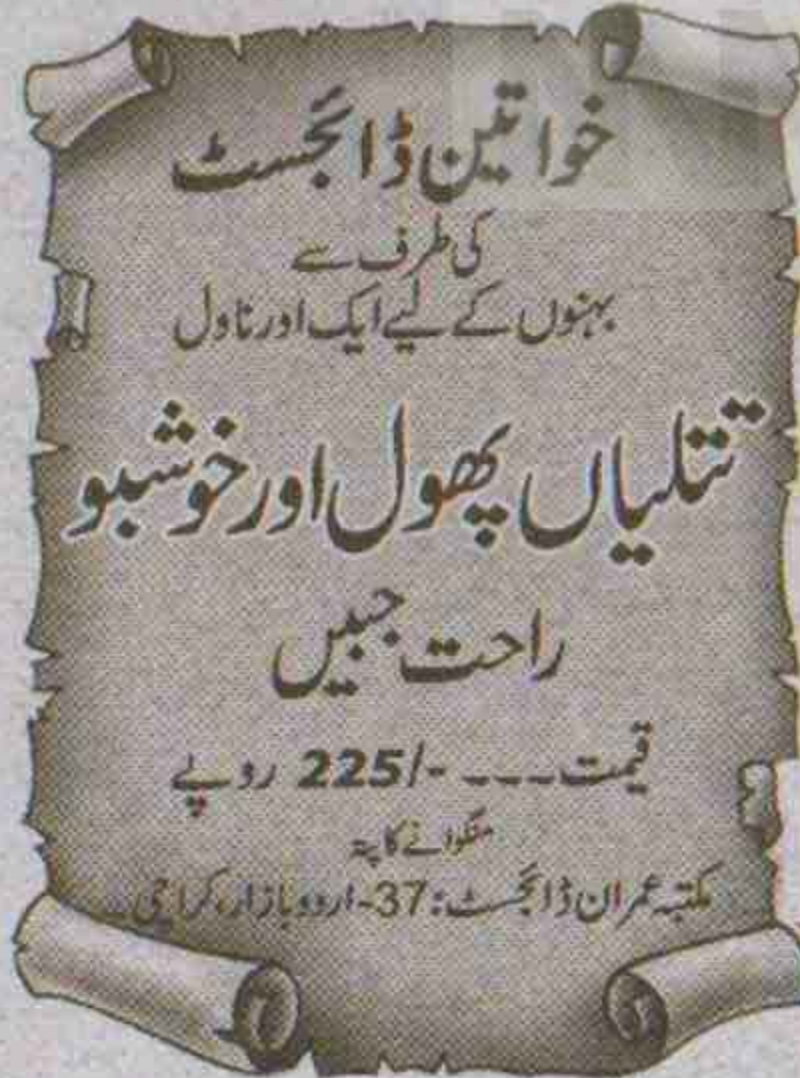 خواتین ڈائجسٹ
کی طرف سے
بہنوں کے لیے ایک اور ناول
تتلیاں پھول اور خوشبو
راحت جبیں
قیمت ---- 225/- روپے
منگوانے کا پتہ
مکتبہ عمران ڈائجسٹ: 37- اردو بازار، کراچی۔